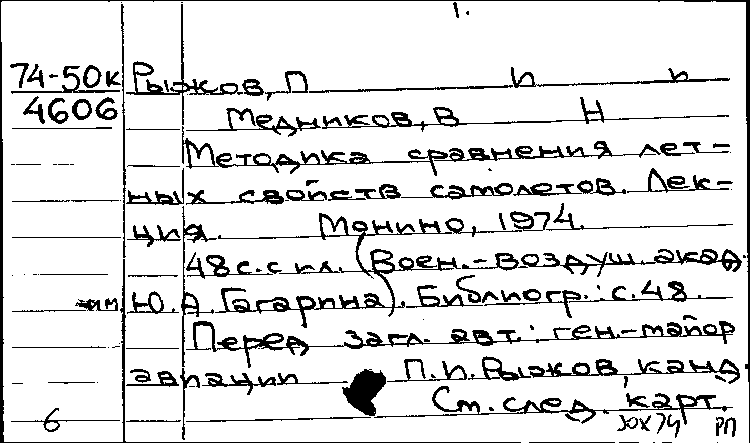 1.
74-50к Рыжков, П И и
4606 Медников, В Н
Методика сравнения лет-
ных свойств самолетов. Лек-
ция. Монино, 1974.
48с. с ил. (Воен.-воздуш. акад.
им. Ю. А. Гагарина). Библиогр.: с.48.
Перед загл. авт.: ген.-майор
авиации П.И. Рыжков, канд.
См. след. карт.
6 РП